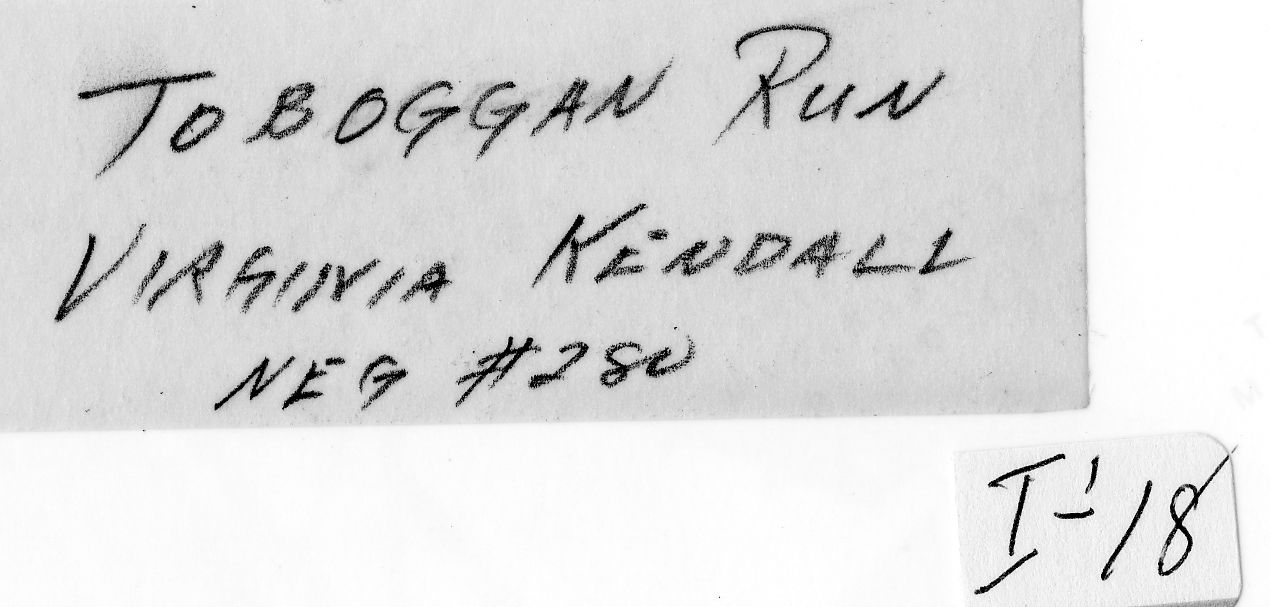 TOBOGGAN RUN
VIRGINIA KENDALL
NEG #280
I-18